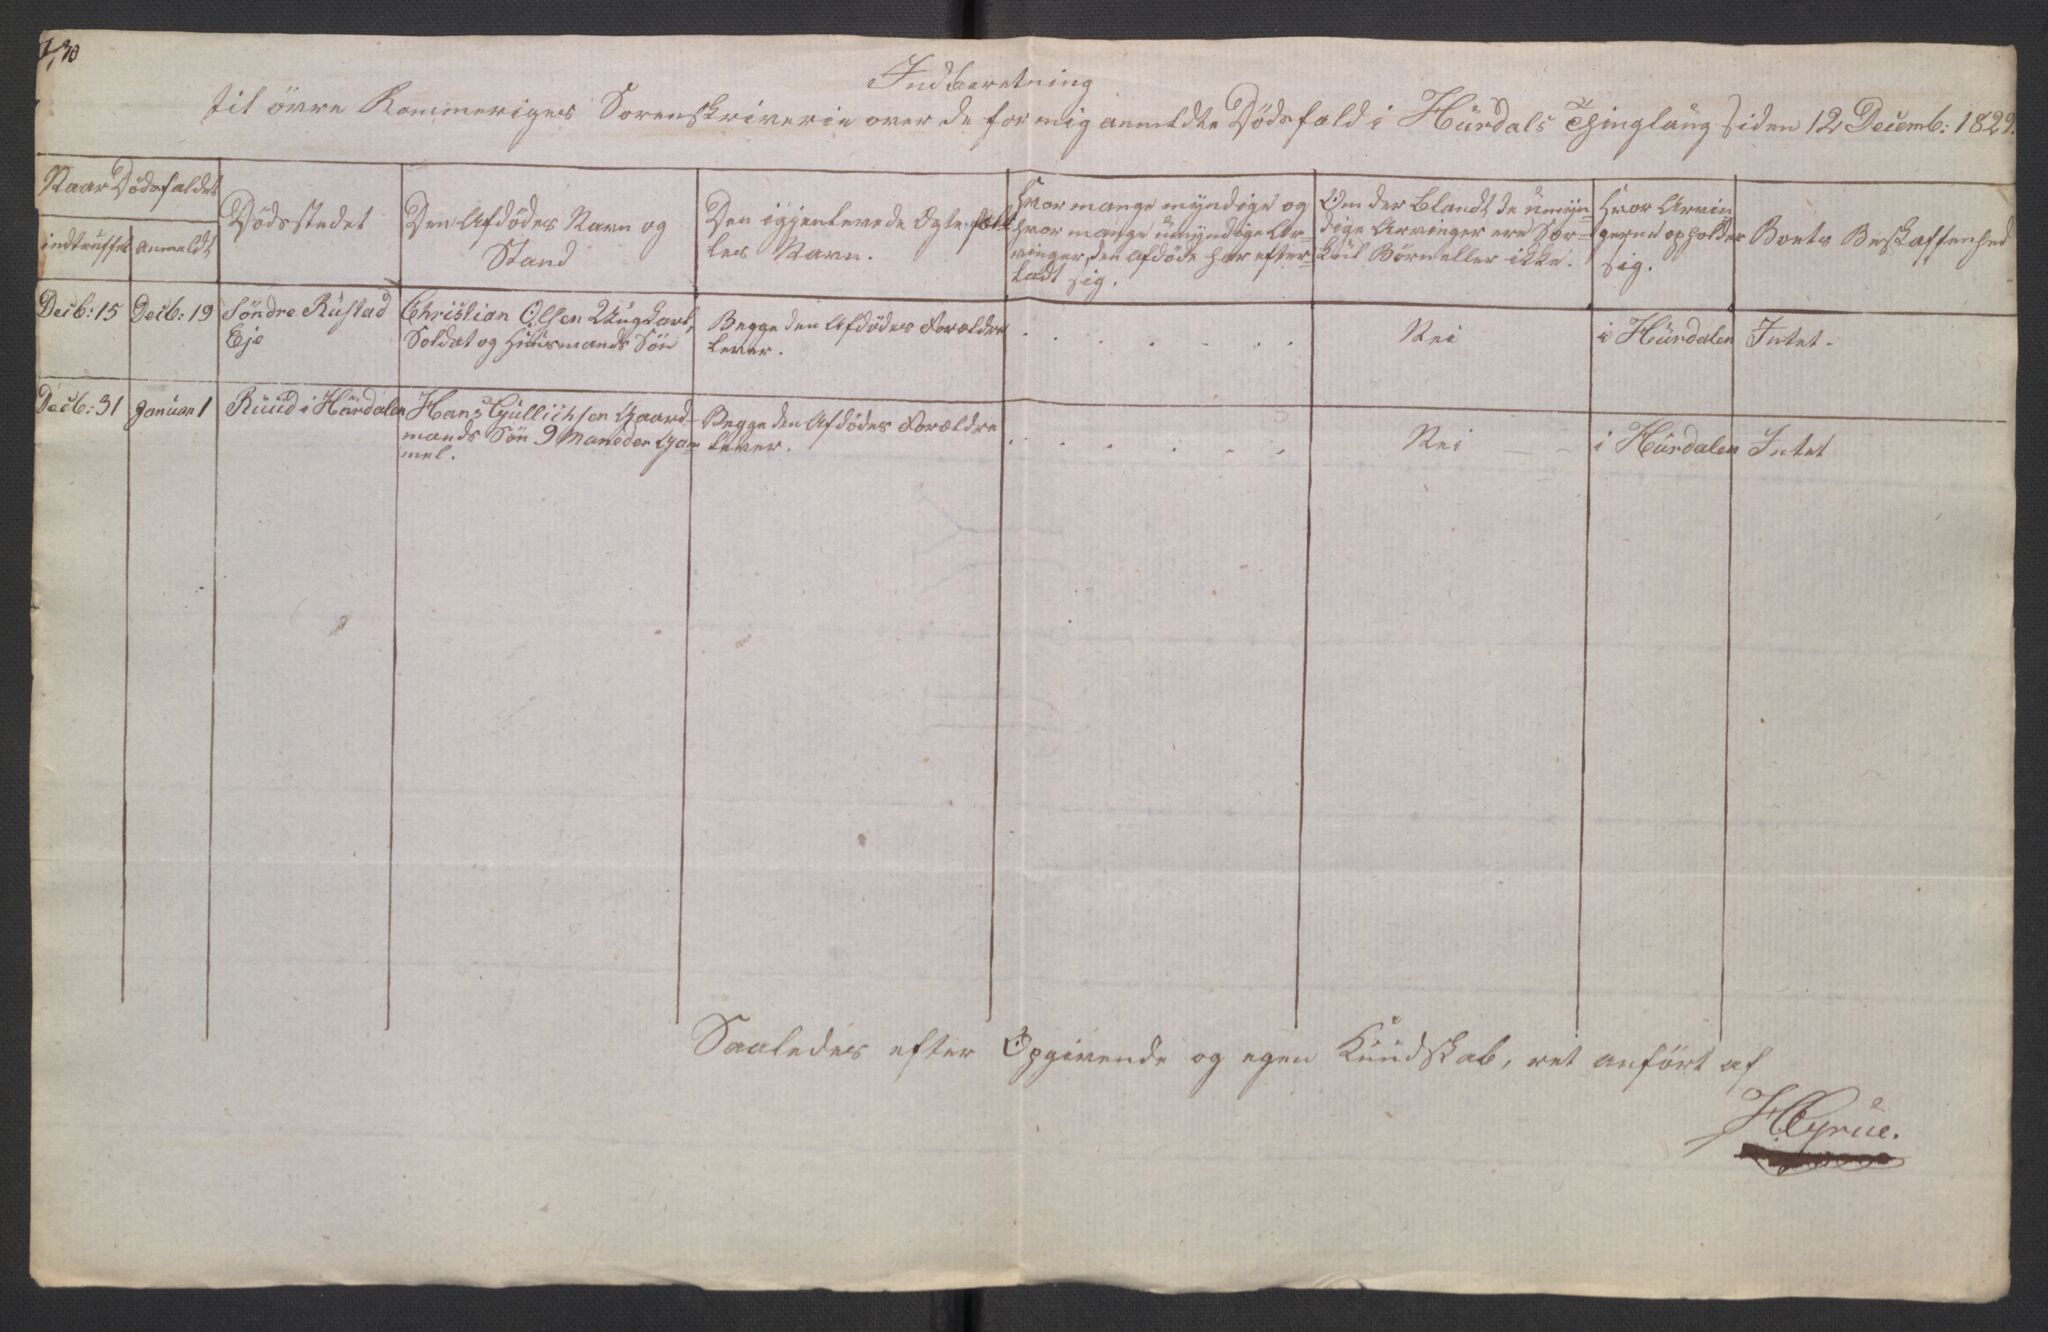 1/1 30
Indberetning
til övre Rommeriges Sorenskriverie over de for mig anmeldte Dödsfald i Hürdals Thinglaug siden 12 Decemb: 1829.
Naar Dödsfaldet
indtruffet
anmeldt
Dödsstedet
Den Afdödes Navn og
Stand
Den igjenlevende Ægtefæl-
les Navn.
Hvor mange myndige og
hvor mange ümyndige Ar-
vinger, den Afdöde har efter-
ladt sig.
Om der blandt de ümyn-
dige Arvinger ere Sör-
küll Börn eller ikke.
Hvor Arvin
gerne opholder
sig.
Boets Beskaffenhed
Decb: 15
Decb: 19
Söndre Rüstad
Eje
Christian Olsen Ungkarl,
Soldat og Hüüsmands Sön
Begge den Afdödes Forældre
lever.
Nei
i Hürdalen
Intet.
Decb: 31
Januar 1
Rüüd i Hürdalen
Hans Gullichsen Gaard-
mands Sön 9 Maneder Gam-
mel.
Begge den Afdödes Forældre
lever.
Nei
i Hürdalen
Intet
Saaledes efter Opgivende og egen Kündskab, ret anfört af